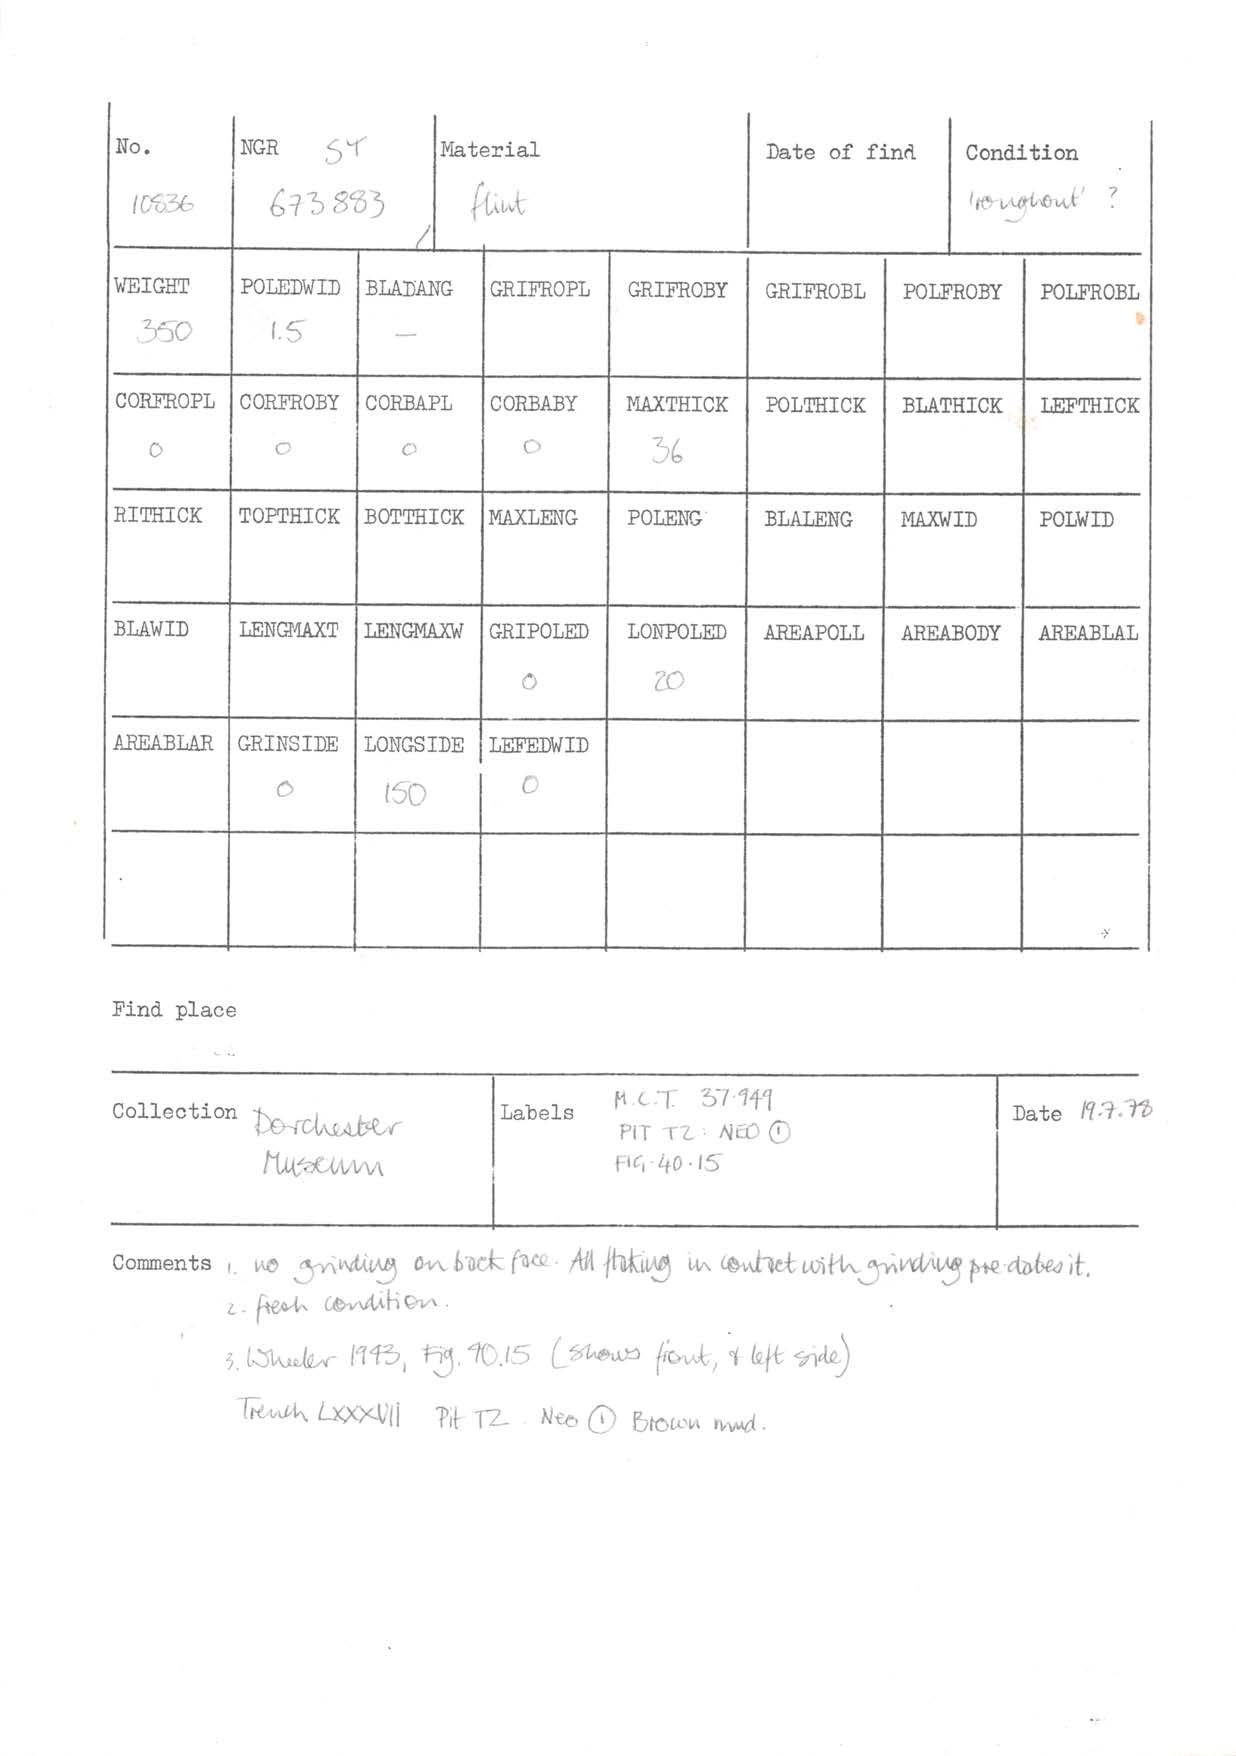 No. NGR ST Material Date of find Condition
10836 673883 flint 'roughout' ?
WEIGHT POLEDWID BLADANG GRIFROPL GRIFROBY GRIFROBL POLFROBY POLFROBL
350 1.5 —
CORFROPL CORFROBY CORBAPL CORBABY MAXTHICK POLTHICK BLATHICK LEFTHICK
0 0 0 0 36
RITHICK TOPTHICK BOTTHICK MAXLENG POLENG BLALENG MAXWID POLWID
BLAWID LENGMAXT LENGMAXW GRIPOLED LONPOLED AREAPOLL AREABODY AREABLAL
0 20
AREABLAR GRINSIDE LONGSIDE LEFEDWID
0 150 0
Find place
Collection Dorchester Museum
Labels M.C.T. 37.949
PIT T2: NEO ①
FIG.40.15
Date 19.7.78
Comments 1. no grinding on back face. All flaking in contact with grinding pre-dates it.
2. fresh condition.
3. Wheeler 1943, Fig. 40.15 (shows front, & left side)
Trench LXXXVII Pit T2. Neo ① Brown mud.